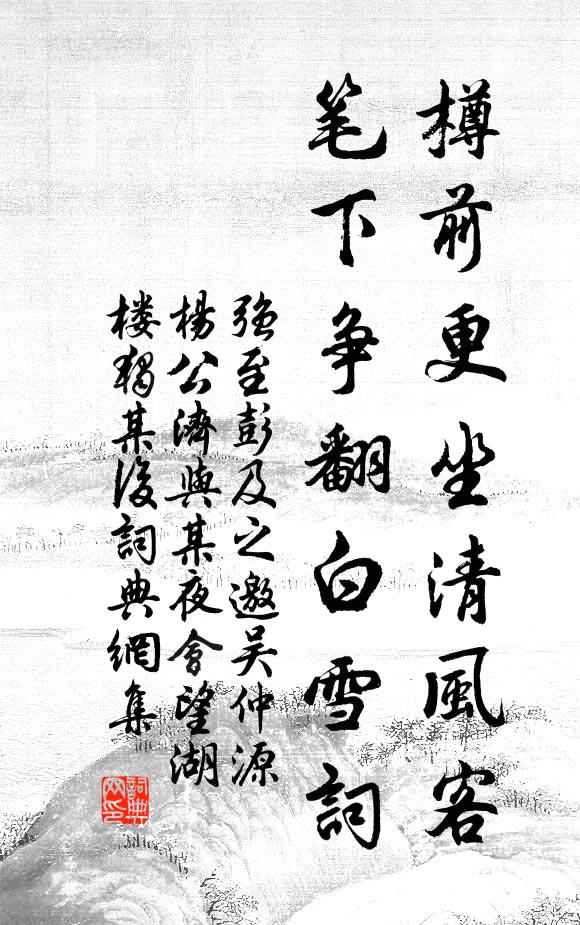 樽前更坐清風客
笔下争翻白雪詞
强至彭及之邀吴仲源
楊公濟與某夜會望湖
楼獨某後詞典網集
詞典
网印